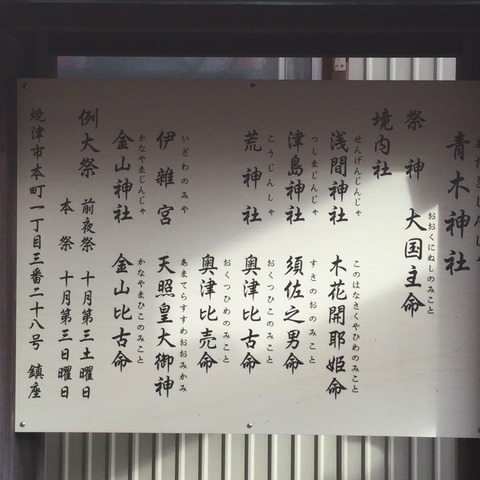 青木神社
祭神 大国主命
おおくにぬしのみこと
境内社
浅間神社 木花開耶姫命
せんげんじんじゃ このはなさくやひめのみこと
津島神社 須佐之男命
つしまじんじゃ すさのおのみこと
荒神社 奥津比古命
こうじんしゃ おくつひこのみこと
奥津比売命
おくつひめのみこと
伊雑宮 天照皇大御神
いざわのみや あまてらすすめおおみかみ
金山神社 金山比古命
かなやまじんじゃ かなやまひこのみこと
例大祭 前夜祭 十月第三土曜日
本祭 十月第三日曜日
焼津市本町一丁目三番二十八号 鎮座